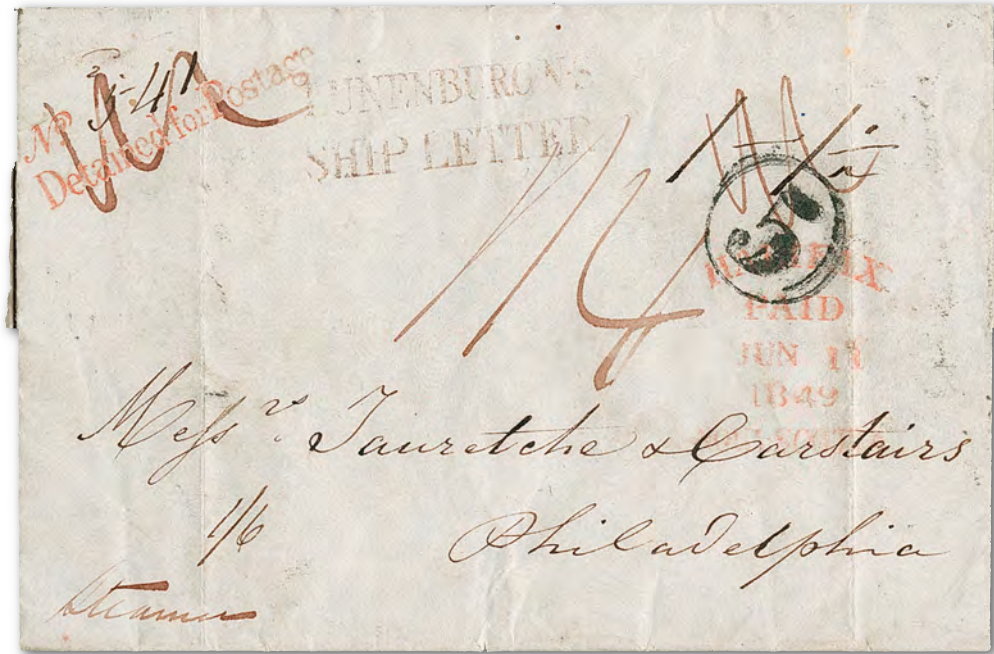 No
Detained for Postage
LUNENBURG N·S
SHIP LETTER
5
HALIFAX
PAID
JUN 11
1849
Messrs Tauretche & Carstairs
1/6
Philadelphia
Steamer